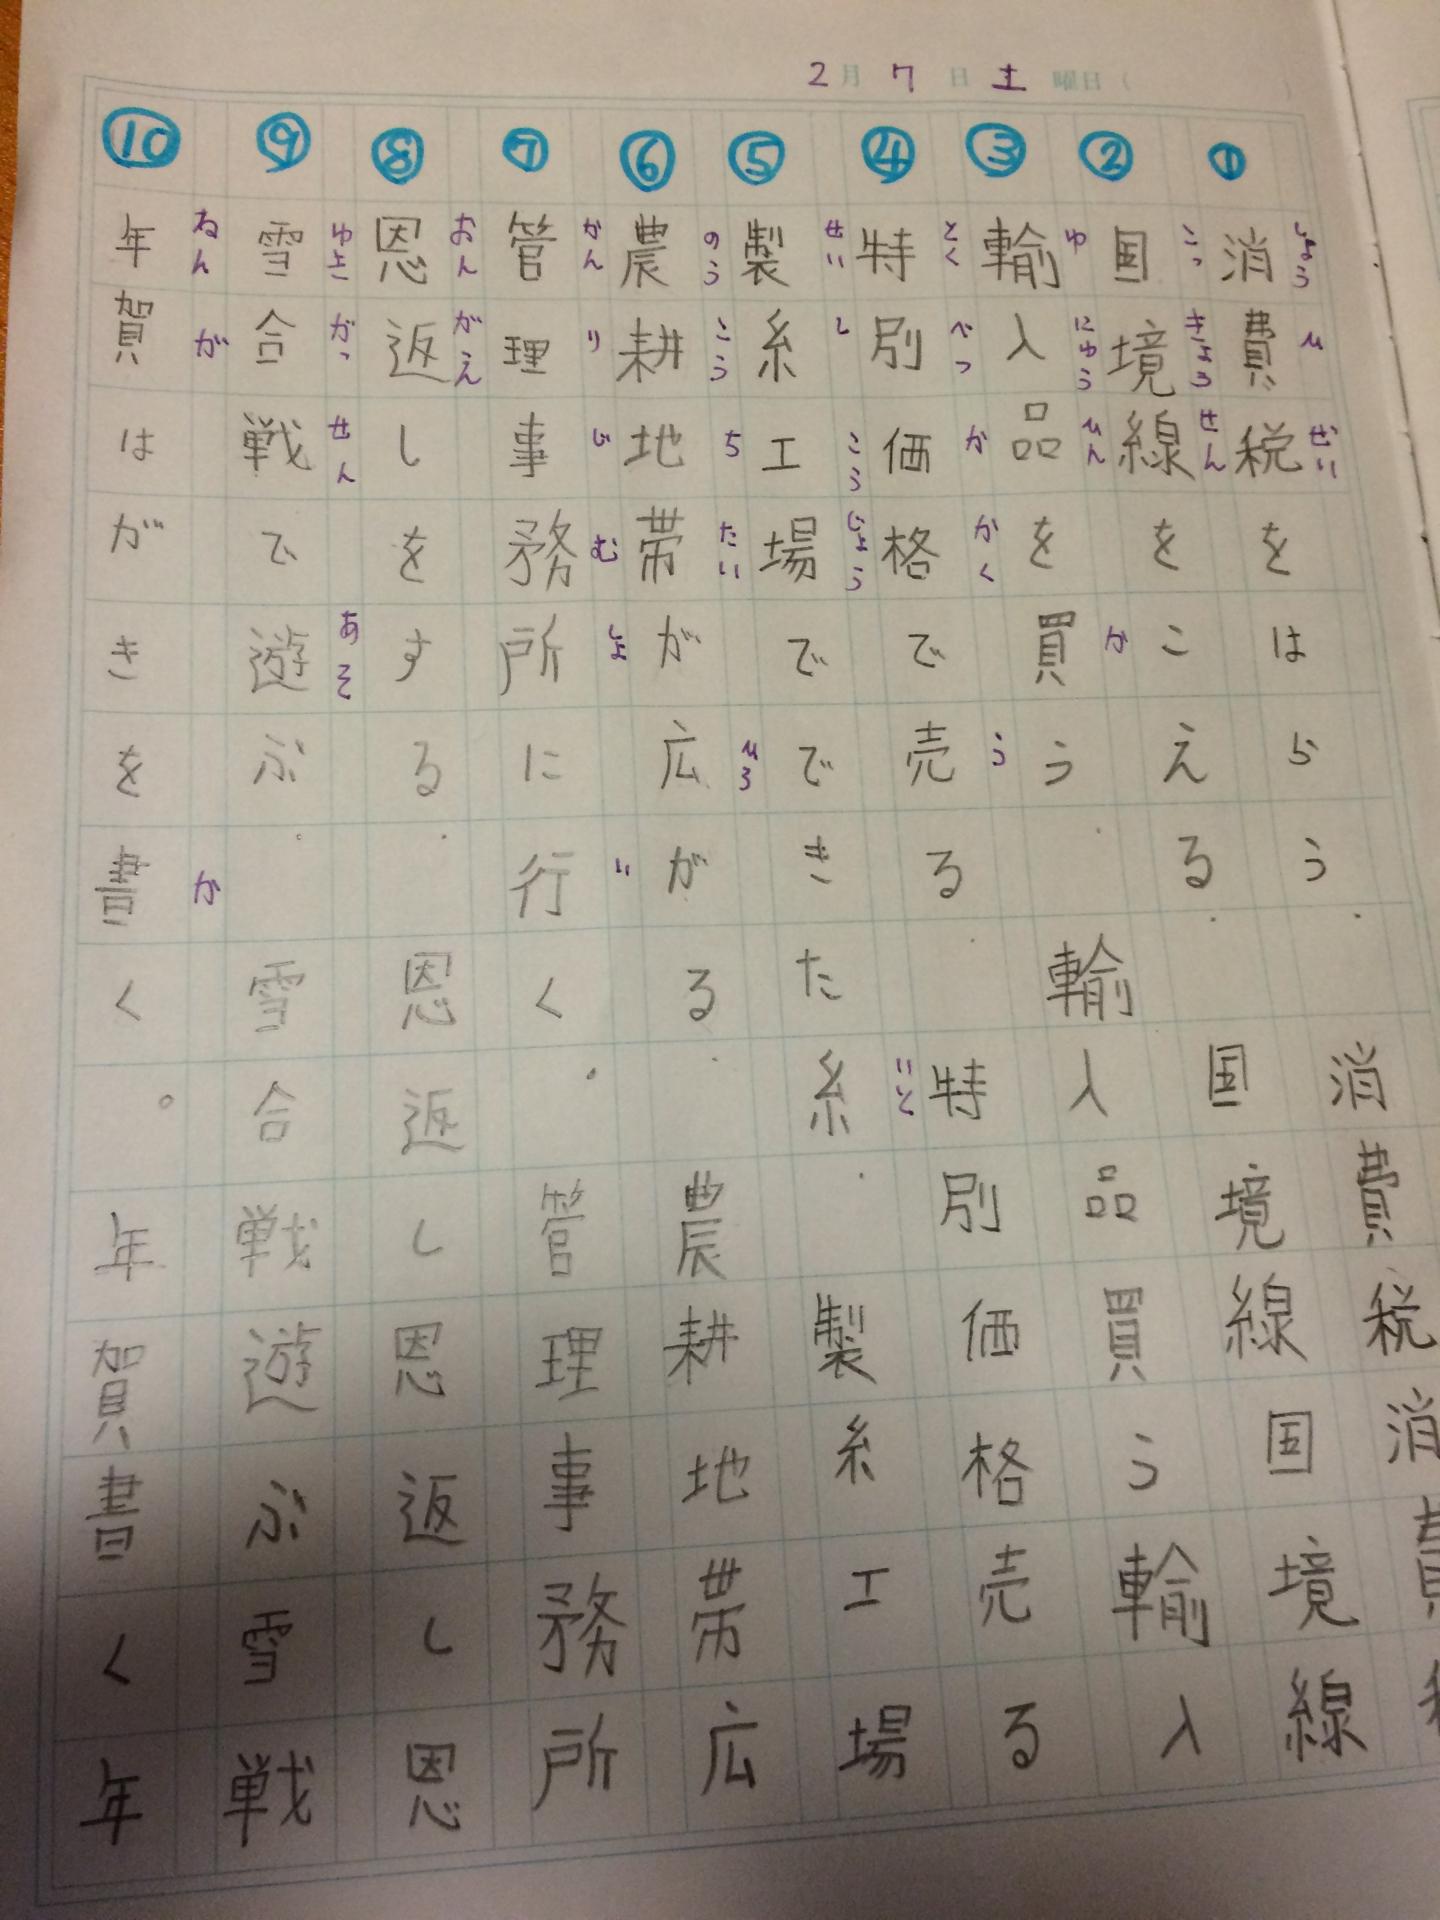 2月 7日 土曜日(
①
しょうひぜい
消費税をはらう。消費税消費税
②
こっきょうせん
国境線をこえる。国境線国境線
③
ゆにゅうひん か
輸入品を買う。輸入品買う輸入
④
とくべつかかく う
特別価格で売る。特別価格売る
⑤
せいしこうじょう いと
製糸工場でできた糸。製糸工場
⑥
のうこうちたい ひろ
農耕地帯が広がる。農耕地帯広
⑦
かんりじむしょ い
管理事務所に行く。管理事務所
⑧
おんがえ
恩返しをする。恩返し恩返し恩
⑨
ゆきがっせん あそ
雪合戦で遊ぶ。雪合戦遊ぶ雪戦
⑩
ねんが か
年賀はがきを書く。年賀書く年